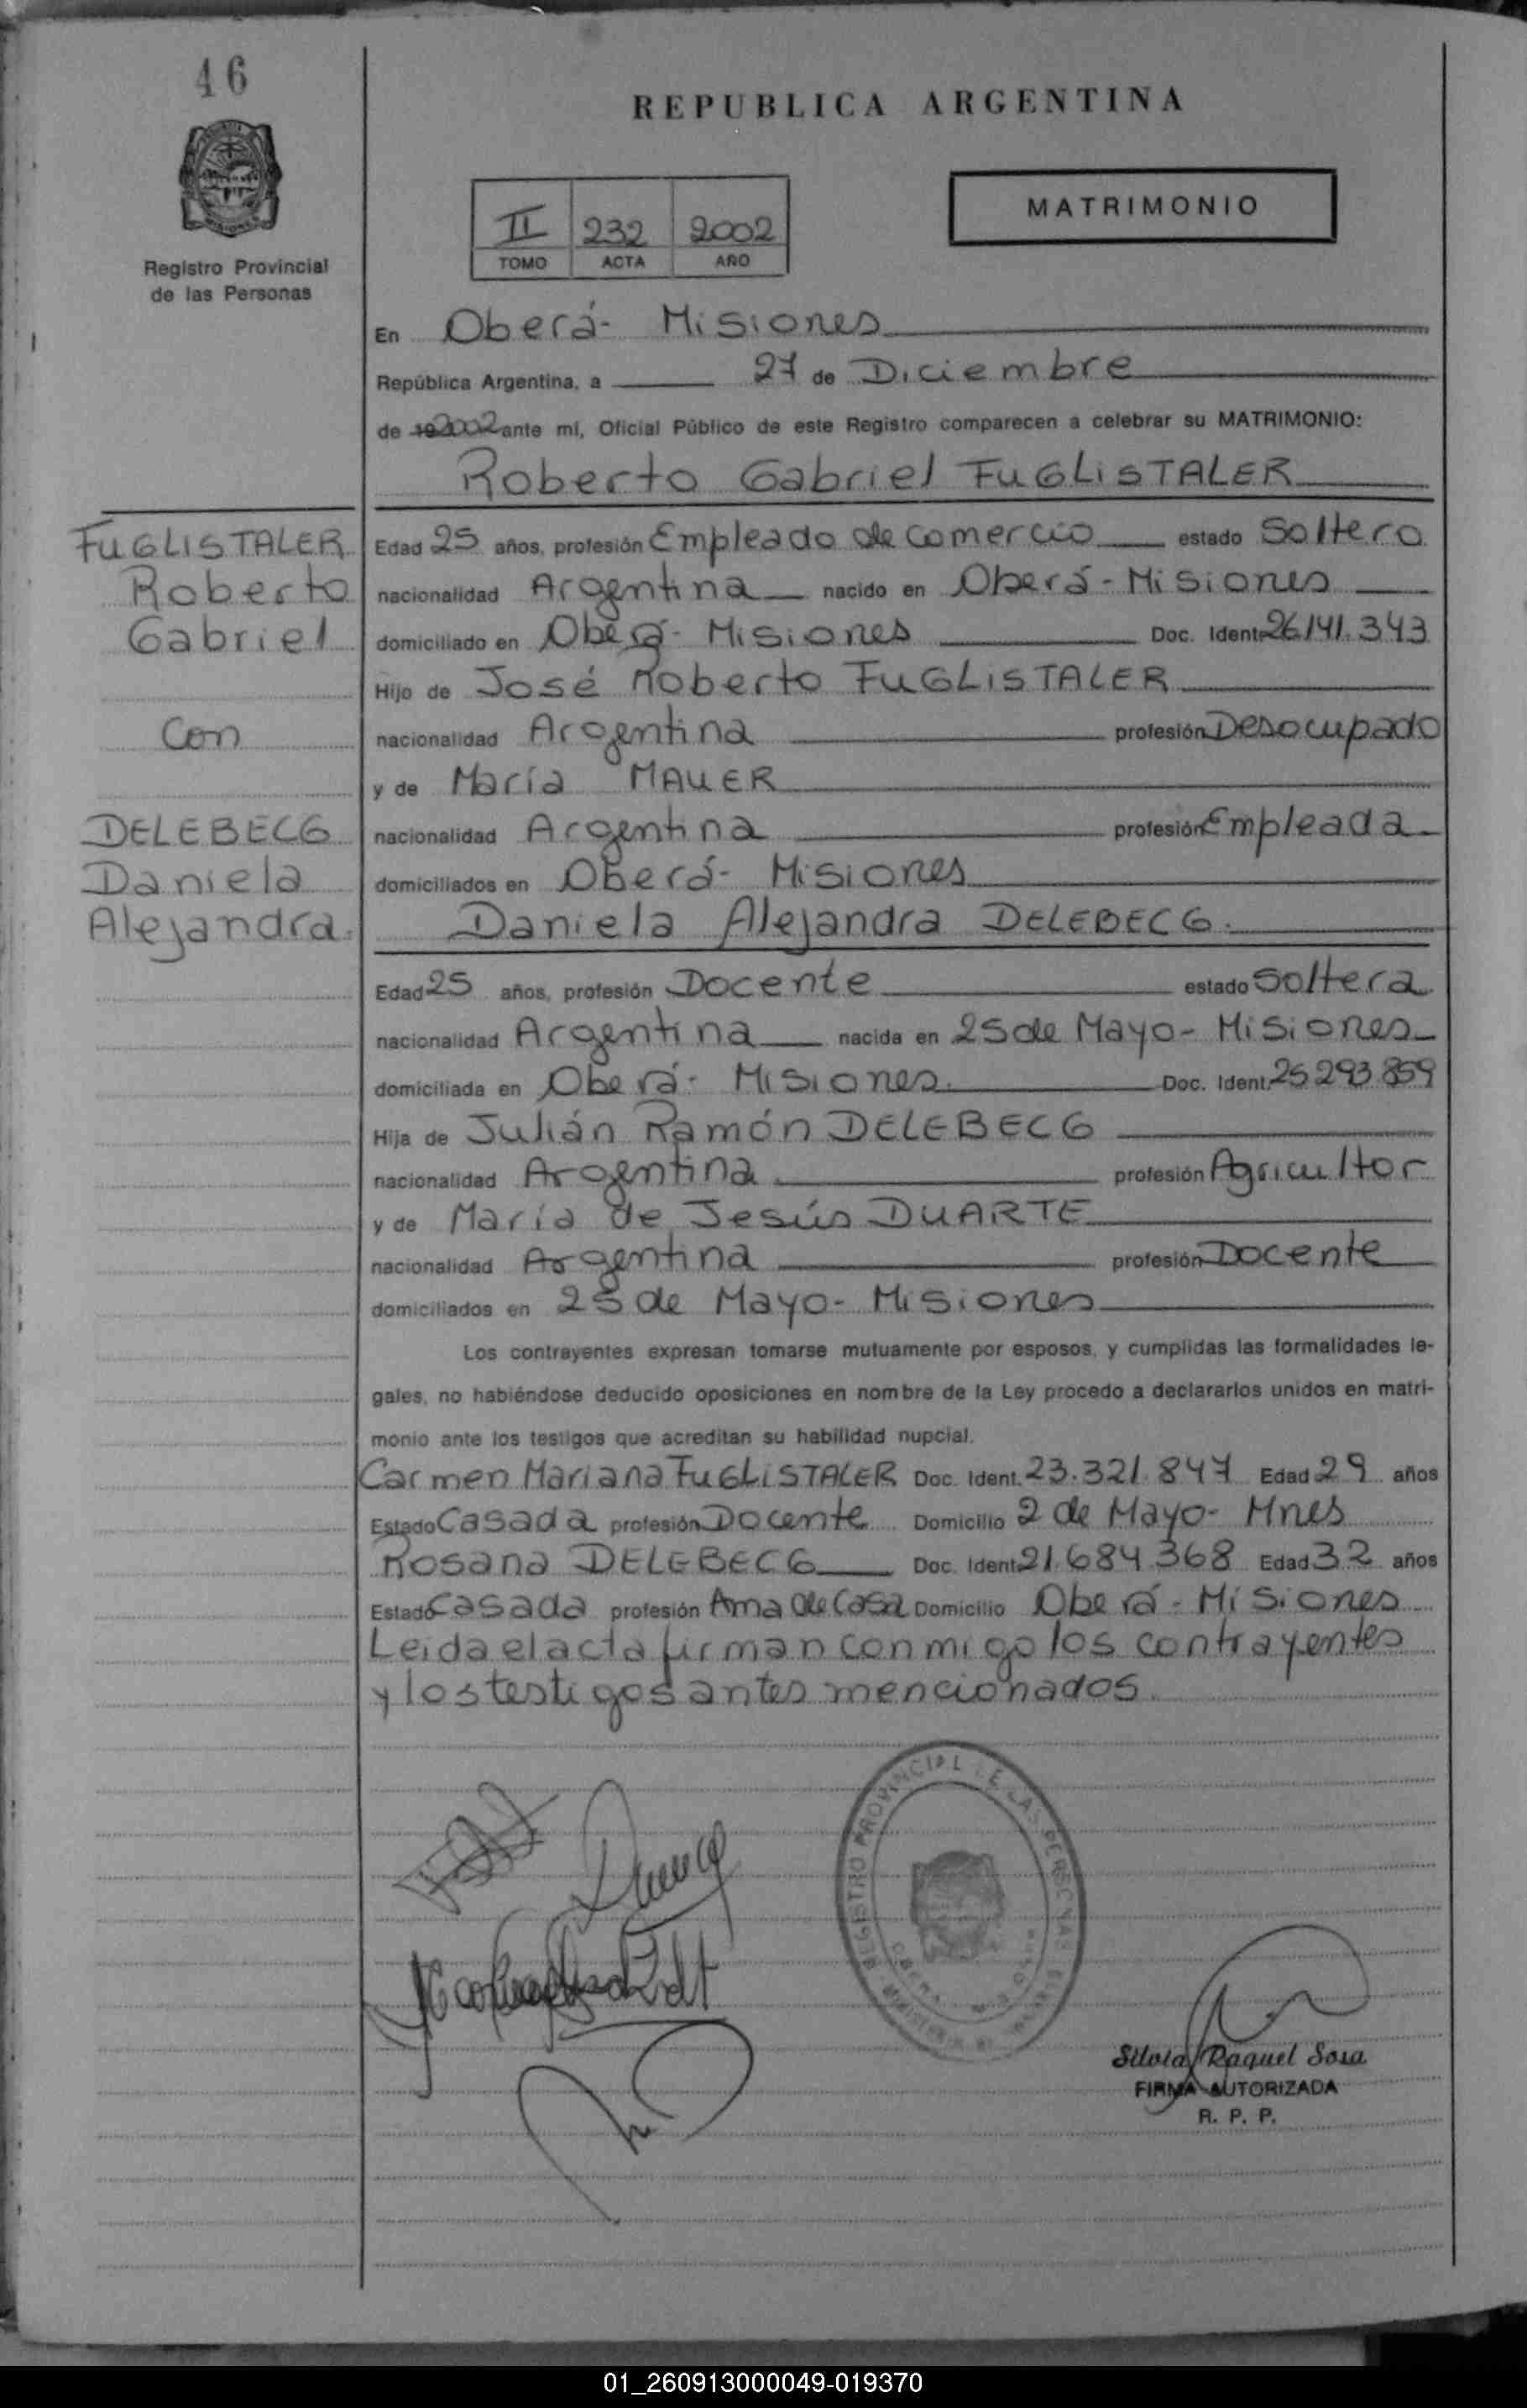 46
REPUBLICA ARGENTINA
MATRIMONIO
II 232 2002
TOMO ACTA AÑO
Registro Provincial
de las Personas
En Oberá- Misiones
República Argentina, a 27 de Diciembre
de 19 2002 ante mí, Oficial Público de este Registro comparecen a celebrar su MATRIMONIO:
Roberto Gabriel FUGLISTALER
FUGLISTALER
Roberto
Gabriel
Con
DELEBECG
Daniela
Alejandra.
Edad 25 años, profesión Empleado de comercio estado Soltero
nacionalidad Argentina nacido en Oberá - Misiones
domiciliado en Oberá - Misiones Doc. Ident. 26.141.343
Hijo de José Roberto FUGLISTALER
nacionalidad Argentina profesión Desocupado
y de María MAUER
nacionalidad Argentina profesión Empleada
domiciliados en Oberá- Misiones
Daniela Alejandra DELEBECG.
Edad 25 años, profesión Docente estado Soltera
nacionalidad Argentina nacida en 25 de Mayo - Misiones
domiciliada en Oberá- Misiones. Doc. Ident. 25.293.859
Hija de Julián Ramón DELEBECG
nacionalidad Argentina profesión Agricultor
y de María de Jesús DUARTE
nacionalidad Argentina profesión Docente
domiciliados en 25 de Mayo- Misiones
Los contrayentes expresan tomarse mutuamente por esposos, y cumplidas las formalidades le-
gales, no habiéndose deducido oposiciones en nombre de la Ley procedo a declararlos unidos en matri-
monio ante los testigos que acreditan su habilidad nupcial.
Carmen Mariana FUGLISTALER Doc. Ident. 23.321.847 Edad 29 años
Estado Casada profesión Docente Domicilio 2 de Mayo- Mnes
Rosana DELEBECG Doc. Ident. 21.684.368 Edad 32 años
Estado Casada profesión Ama de Casa Domicilio Oberá - Misiones
Leida el acta firman conmigo los contrayentes
y los testigos antes mencionados.
REGISTRO PROVINCIAL DE LAS PERSONAS
Silvia Raquel Sosa
FIRMA AUTORIZADA
R. P. P.
01_260913000049-019370